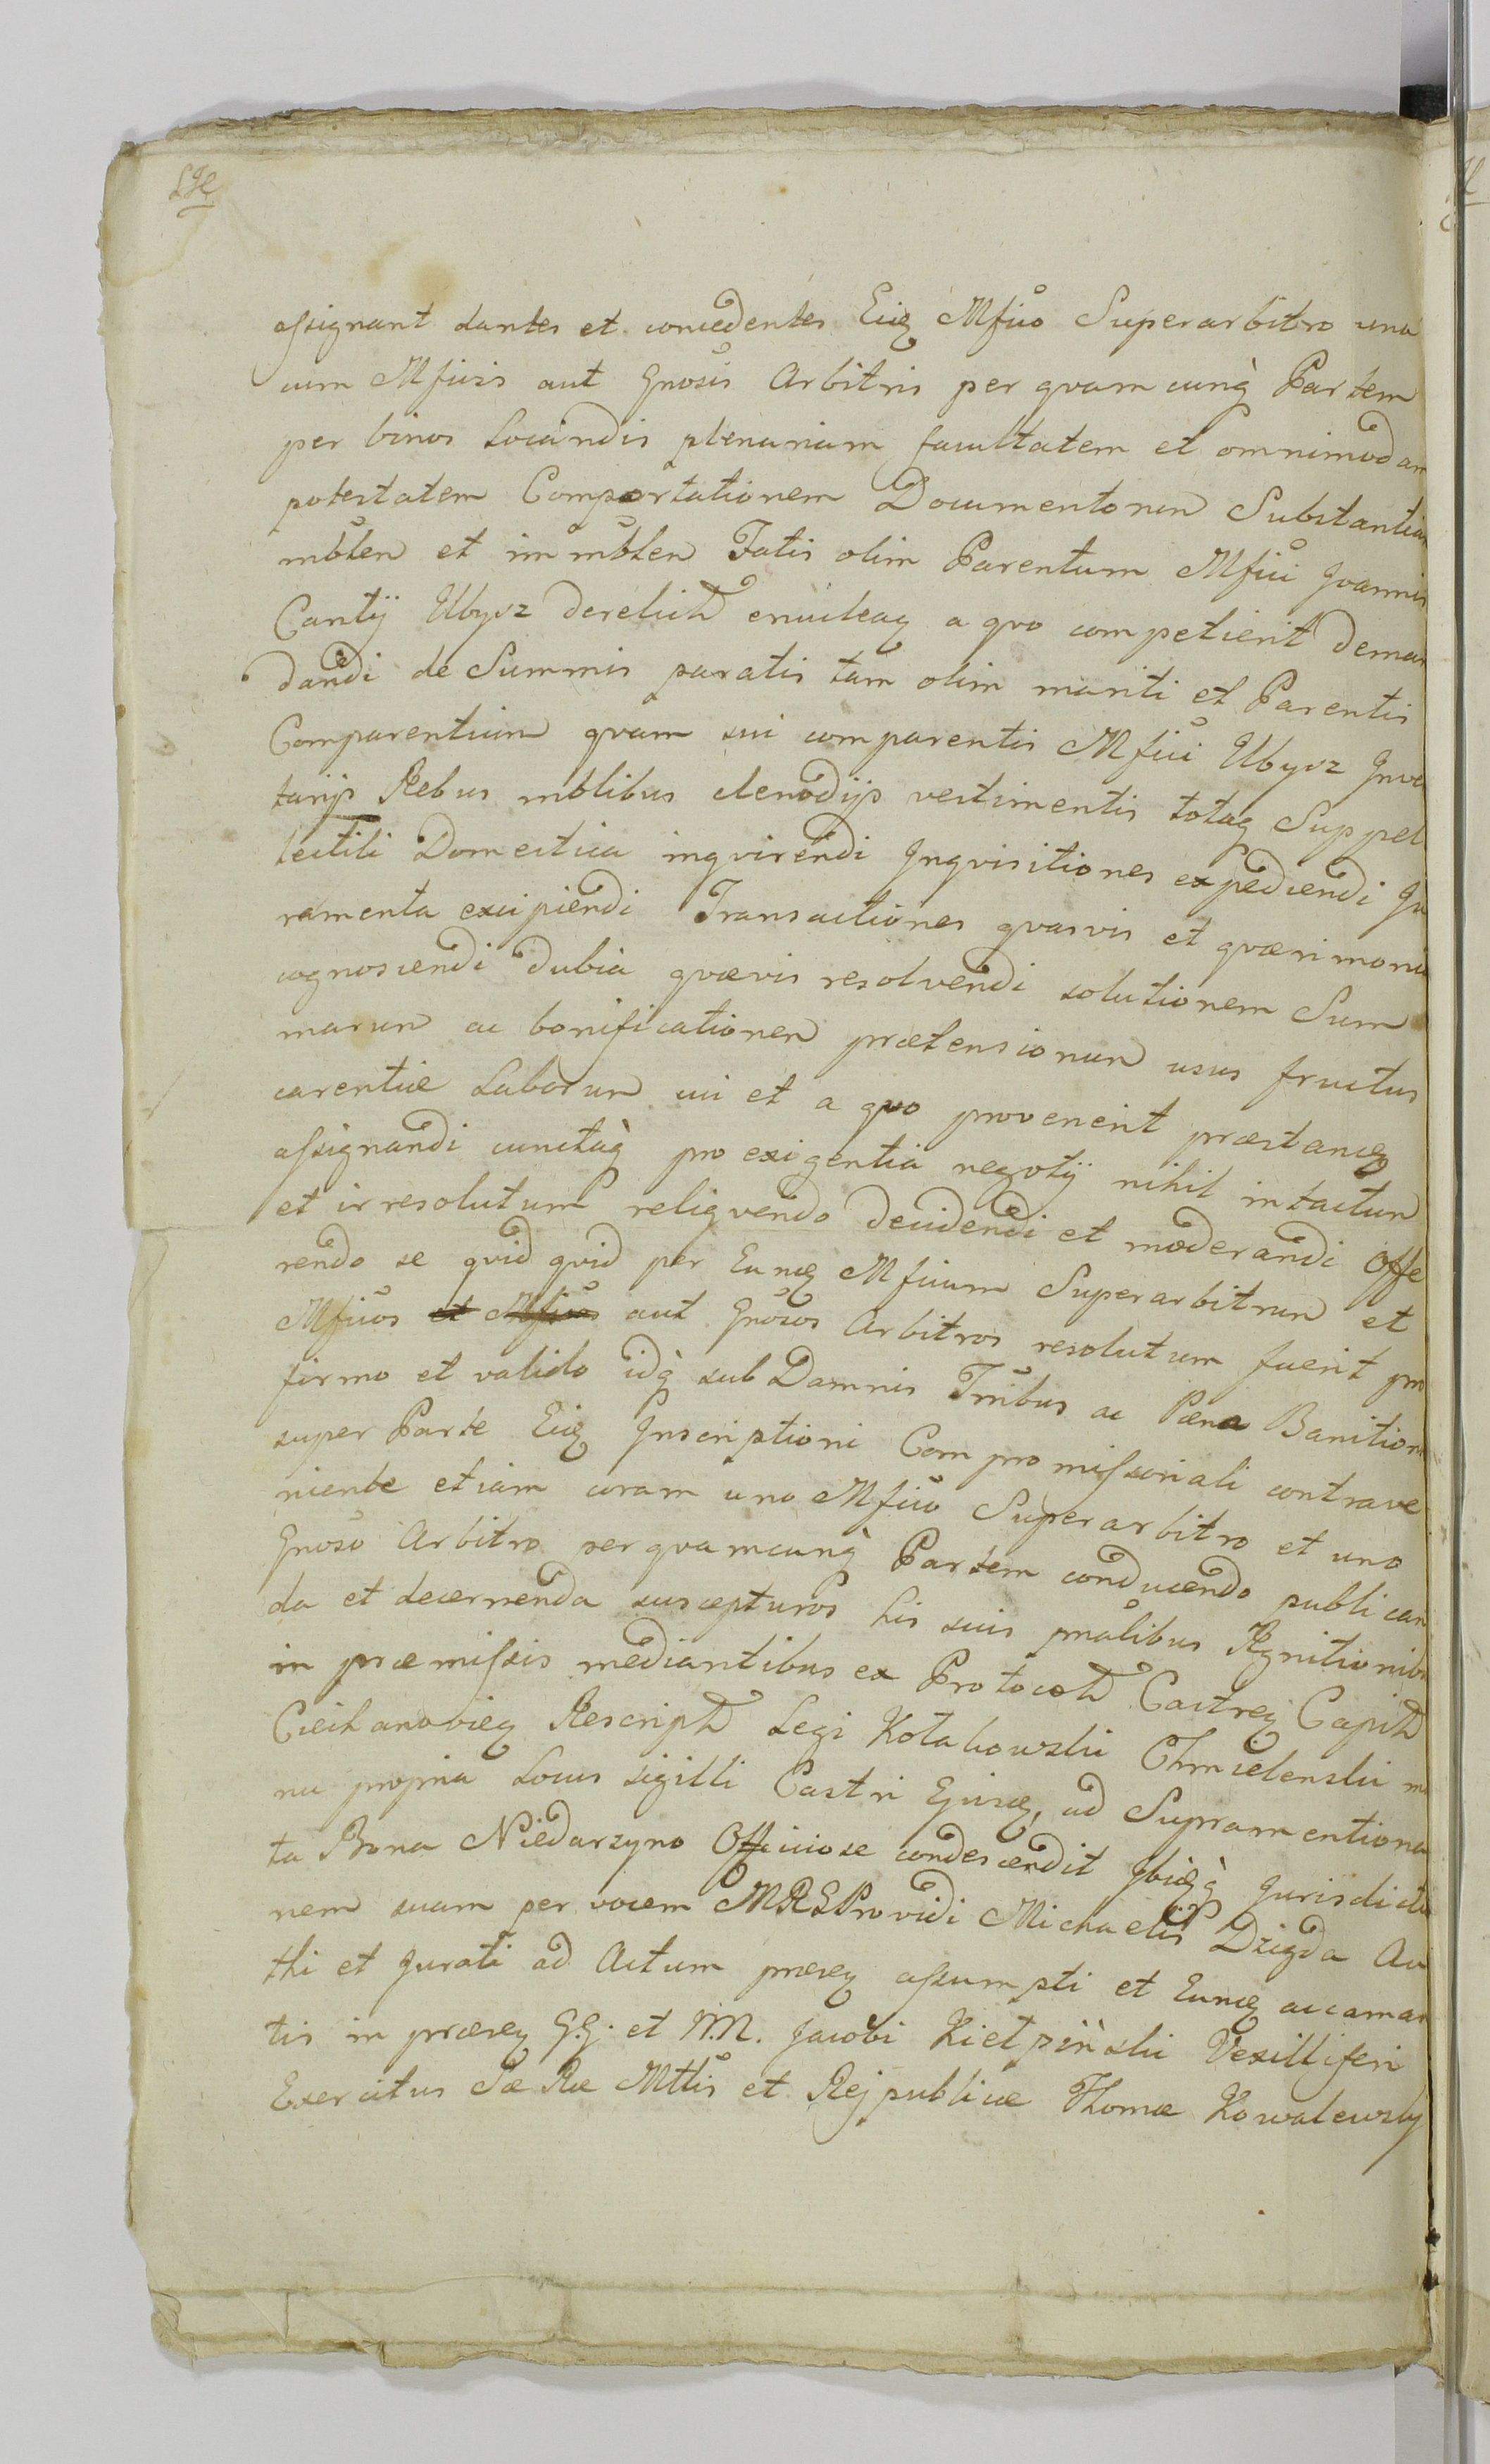 aſsignant dantes et concedentes Eiq Mfico Superarbitro una
cum Mficis aut Gnosis Arbitris per qvamcunq Partem
per binos Locandis plenariam facultatem et omnimodam
potestatem Comportationem Documentorum Substantia
mblem et immblem Fatis olim Parentum Mfici Joannis
Cantij Ubysz derelict a quo competierit deman
dandi de Summis paratis tam olim mariti et Parentis
Comparentium qvam sui comparentis Mfici Ubysz Inve
tarijs Rebus mblibus clenodijs vestimentis totaq Suppel
lectili Domestica inqvirendi Inqvisitiones expediendi Ju
ramenta excipiendi Transactiones qvasvis et qværimoni
cognoscendi dubia qvævis resolvendi solutionem Sum
marum ac bonificationem prætensionum usus fructus
carentiæ Laborum cui et a qvo provenerit præstanq
aſsignandi cunctaq pro exigentia negotij nihil intactum
et irresolutum reliqvendo decidendi et moderandi Offe
rendo se qvidqvid per Eunq Mficum Superarbitrum et
Mficos et Mficos aut Gnosos Arbitros resolutum fuerit pro
firmo et valido idq sub Damnis Trribus ac Pæna Banition
super Parte Eiq Inscriptioni Compromiſsoriali contrave
niente etiam coram uno Mfico Superarbitro et uno
Gnoso Arbitro per qvamcunq Partem conducendo publican
da et decernenda suscepturos his suis pnalibus Rgnitionib
in præmiſsis mediantibus ex Protocoll Castreq Capit
Ciechanovieq Rescript Legi Kotakowski Chmielenski ma
nu propria Locus sigilli Castri Ejusq, ad Supramentiona
ta Bona Niedarzyno Officiose condescendit Ibiqq Jurisdictio
nem suam per vocem MRSProvidi Michaelis Dzigda Au
thi et Jurati ad Actum præsq aſsumpti et Eunq accaman
tis in præsq G.G. et N.N. Jacobi Kiełpiński Vexilliferi
Exercitus Sæ Ræ Mttis et Rejpublicæ Thomæ Kowalewsky